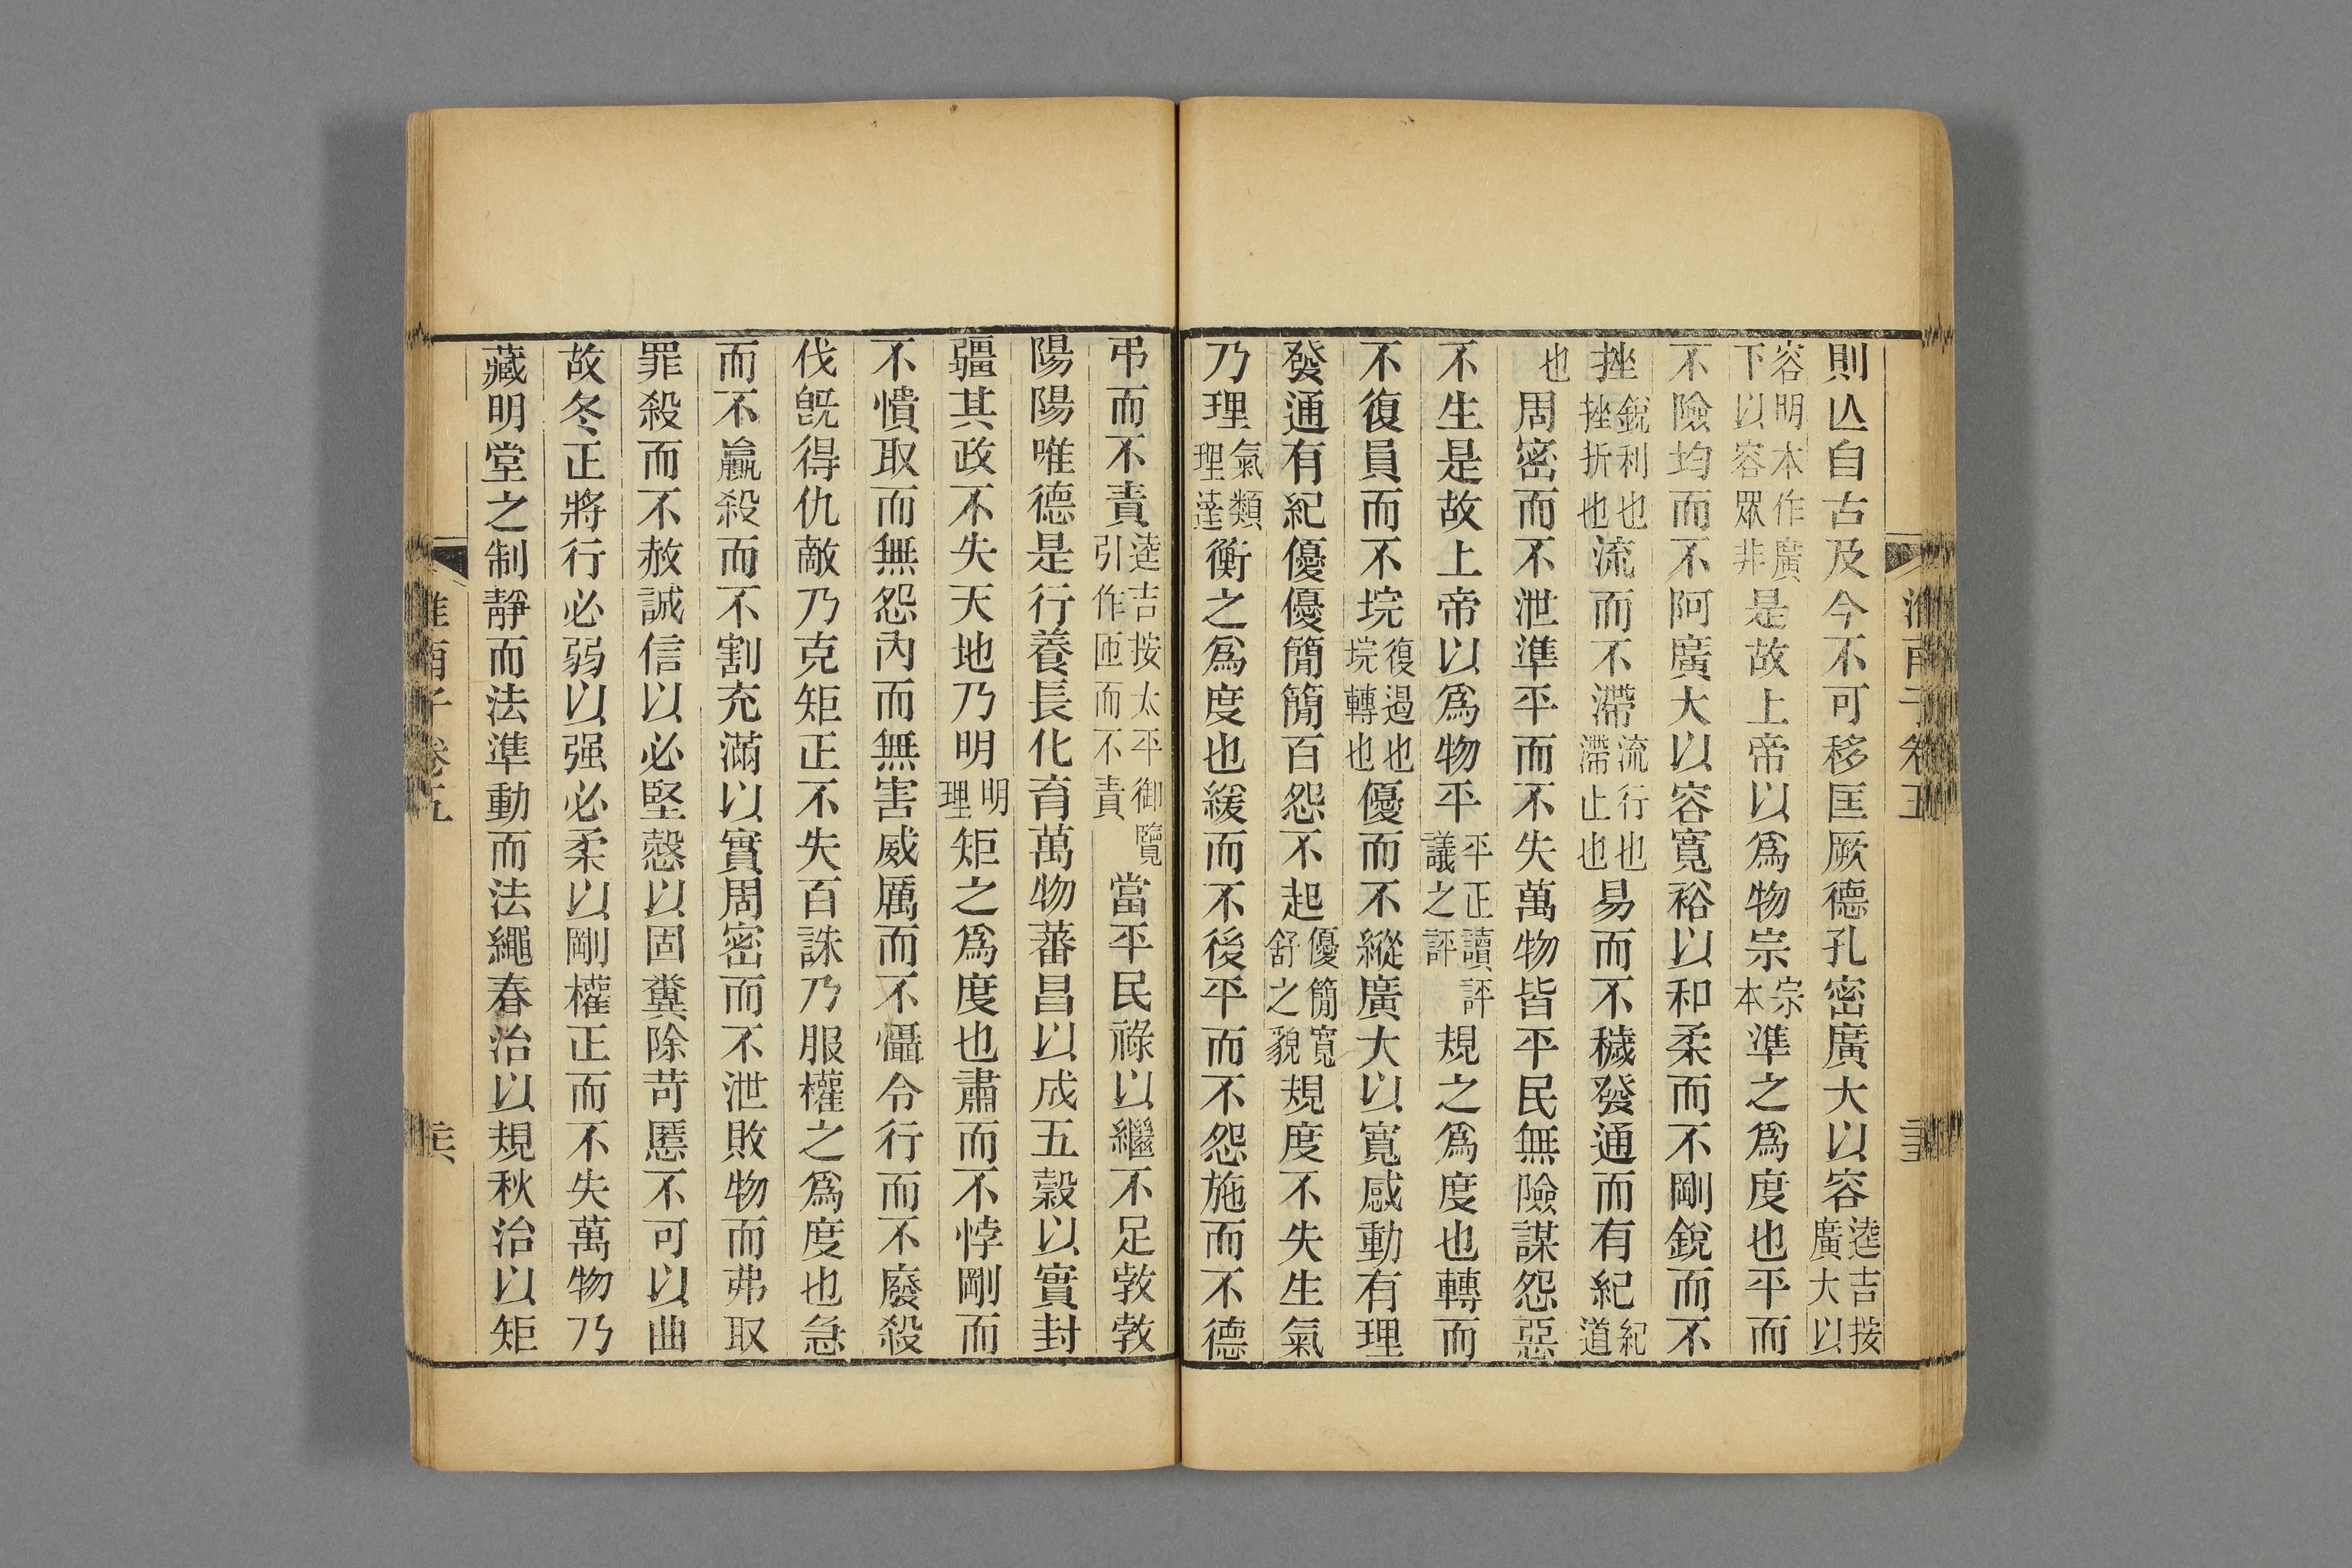 則亾自古及今不可移匡厥德孔密廣大以容逵吉按廣大以
容明本作廣下以容眾非是故上帝以爲物宗宗本準之爲度也平而
不險均而不阿廣大以容寬裕以和柔而不剛銳而不
挫銳利也挫折也流而不滯流行也滯止也易而不穢發通而有紀紀道
也周密而不泄準平而不失萬物皆平民無險謀怨惡
不生是故上帝以爲物平平正讀評議之評規之爲度也轉而
不復員而不垸復遏也垸轉也優而不縱廣大以寬感動有理
發通有紀優優簡簡百怨不起優簡寬舒之貌規度不失生氣
乃理氣類理達衡之爲度也緩而不後平而不怨施而不德
弔而不責逵吉按太平御覽引作匝而不責當平民祿以繼不足敦敦
陽陽唯德是行養長化育萬物蕃昌以成五穀以實封
疆其政不失天地乃明明理矩之爲度也肅而不悖剛而
不憒取而無怨內而無害威厲而不懾令行而不廢殺
伐旣得仇敵乃克矩正不失百誅乃服權之爲度也急
而不贏殺而不割充滿以實周密而不泄敗物而弗取
罪殺而不赦誠信以必堅愨以固糞除苛慝不可以曲
故冬正將行必弱以强必柔以剛權正而不失萬物乃
藏明堂之制靜而法準動而法繩春治以規秋治以矩
淮南子卷五